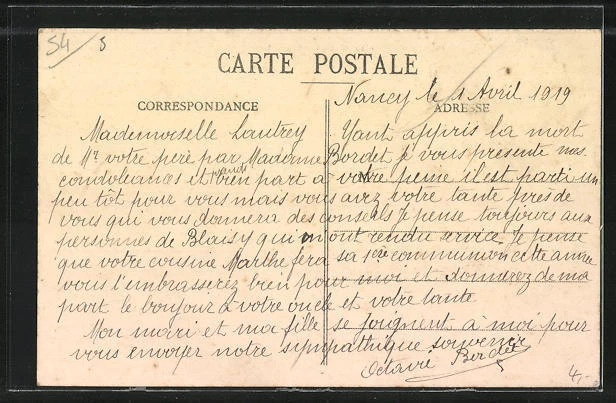 54 5
CARTE POSTALE
Nancy le 1 Avril 1919
CORRESPONDANCE
ADRESSE
Mademoiselle Lautrey Yant appris la mort
de Mr votre père par Madame Bordet je vous présente mes
condoléances et bien part a votre peine il est parti un
peu tôt pour vous mais vous avez votre tante près de
vous qui vous donnera des conseils Je pense toujours aux
personnes de Blaisy qui m'ont rendu service. Je pense
que votre cousine Marthe fera sa 1ère communion cette année
vous l'embrasserez bien pour moi et donnerez de ma
part le bonjour à votre oncle et votre tante
Mon mari et ma fille se joignent à moi pour
vous envoyer notre sympathique souvenir
Octavie Bordet
4,-